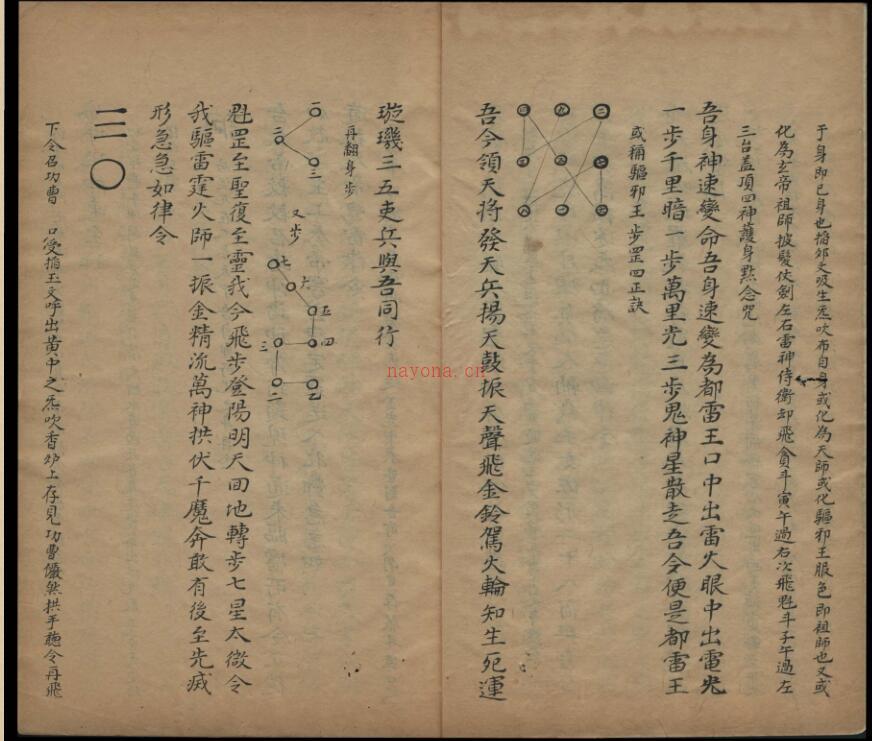 于身即已身也掐卯文吸生炁吹布自身或化為天師或化驅邪王服色即祖師也又或
化為玄帝祖師披髮仗劍左右雷神侍衛却飛貪斗寅午過右次飛魁斗子午過左
三台蓋頂四神護身默念咒
吾身神速變命吾身速變為都雷王口中出雷火眼中出電光
一步千里暗一步萬里光三步鬼神星散走吾今便是都雷王
或稱驅邪王步罡四正訣
四 九 二
三 五 七
八 一 六
吾今領天將發天兵揚天鼓振天聲飛金鈴駕火輪知生死運
璇璣三五吏兵與吾同行
再翻身步
一
二
三
又步
七
六
五
四
三
二
乙
魁罡至聖復至靈我今飛步登陽明天回地轉步七星太微令
我驅雷霆火師一振金精流萬神拱伏千魔奔敢有後至先滅
形急急如律令
下令召功曹 口受掐玉文呼出黄中之炁吹香炉上存見功曹儼然拱手聽令再飛
nayona.cn